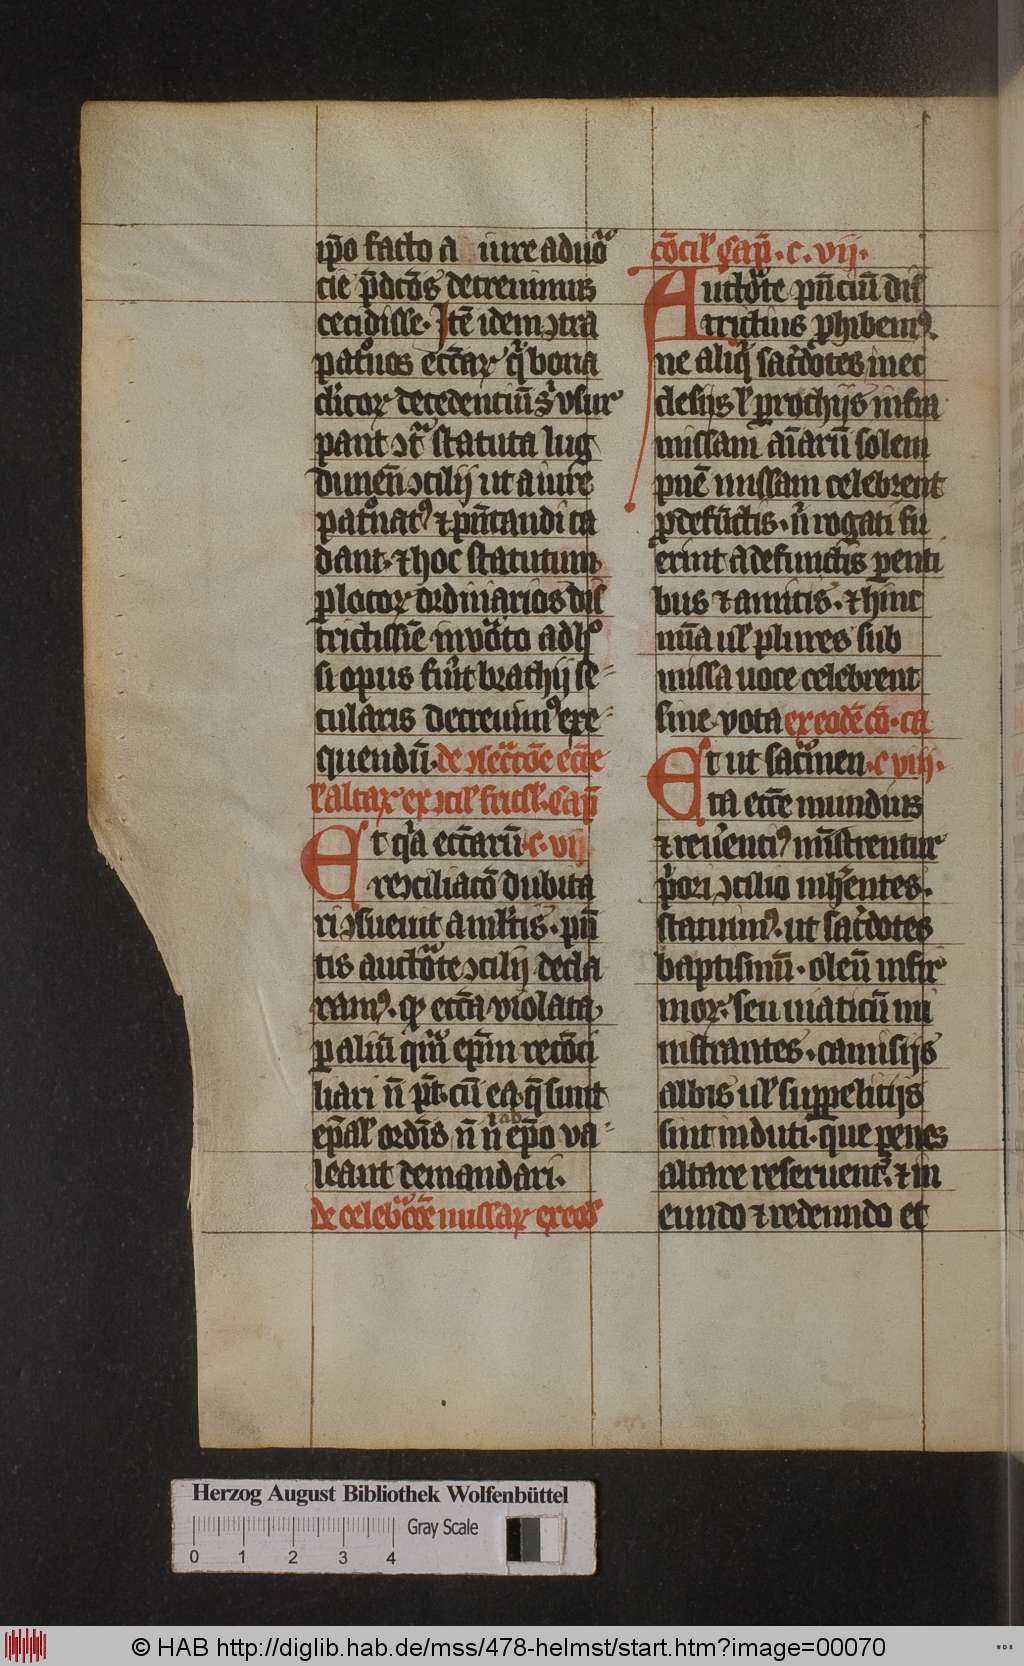 ip̄o facto a iure aduo
cie p̄dcō̄s decreuimus
cecidisse. Itē idem ꝯtra
pat͛nos ecc̄aꝝ q̇ bona
cl̓icoꝝ decedenciū sͥ vsur
pant ꝯͭ statuta lug
dunen̄ ꝯcilij ut a iure
pat͛nat⁹ ⁊ p̄ntandi ca
dant. ⁊ hoc statutum
ꝑ locoꝝ ordinarios dis
trictissiē inuoͣto adhͦ
si opus fu̓it brachij se
cularis decreuim⁹ exe
quendū. de ꝯsecͣcōe ecc̄e
ł altaꝝ ex ꝯcil̓ frisl̓. Cap̄
Et q̇a ecc̄arū. c. vij
reꝯciliacō dubita
ri ꝯsueuit a ml̓tis. p̄n
tis auctoͣte ꝯcilij decla
ram⁹. ꝙ ecc̄a violata
ꝑ aliū qͣm ep̄m recōci
liari n̄ pt̄. cū ea q̄ sunt
ep̄al̓ ordīs n̄ n̓ ab ep̄o va
leant demandari.
de celebͣcōe missaꝝ ex eod̓
cōcil̓ Cap̄. c. vij.
Auctoͣte p̄nciū dis
trictius ꝓhibem⁹.
ne aliq̇ sac̓dotes in ec
clesijs ł ꝑrochijs infra
missam aīarū solem
pnē missam celebrent
ꝓ defūctis. n̓ rogati fu
erint a defunctis ꝑenti
bus ⁊ amicis. ⁊ hinc
una ul̓ plures sub
missa uoce celebrent
sine nota ex eodē cō. ca
Et ut sac̓men. c viij.
ta ecc̄e mundius
⁊ reu̓enci⁹ mīstrentur
p̓ori ꝯcilio inh̓entes.
statuim⁹. ut sac̓dotes
baptismū. oleū infir
moꝝ. seu uiaticū mi
nistrantes. camisijs
albis ul̓ suꝑpelicijs
sint induti. que penes
altare reseruent᷑. ⁊ in
eundo ⁊ redeundo et
Herzog August Bibliothek Wolfenbüttel
Gray Scale
0 1 2 3 4
© HAB http://diglib.hab.de/mss/478-helmst/start.htm?image=00070